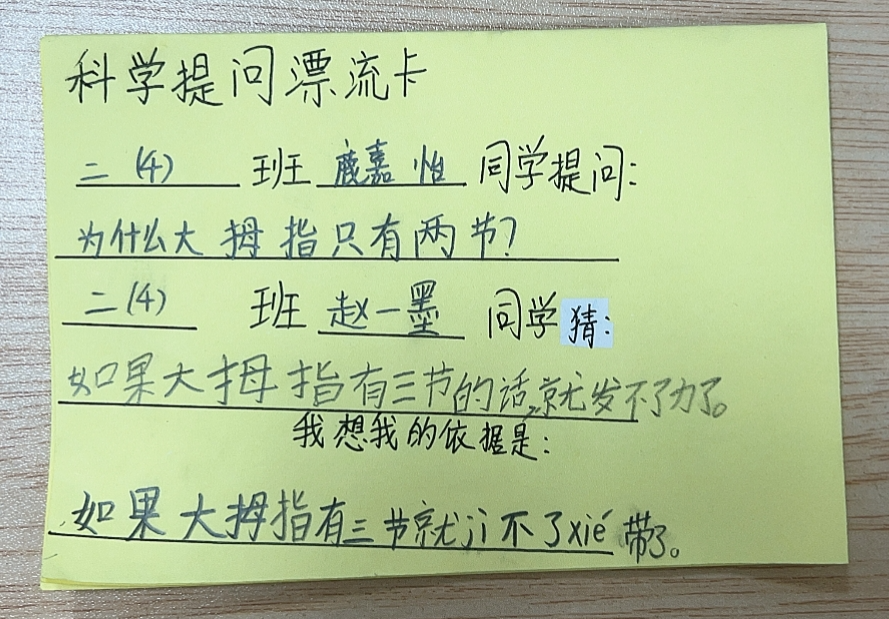 科学提问漂流卡
二(4) 班 鹿嘉怡 同学提问:
为什么大拇指只有两节?
二(4) 班 赵一墨 同学猜:
如果大拇指有三节的话,就发不了力了。
我想我的依据是:
如果大拇指有三节就jì不了xié带了。